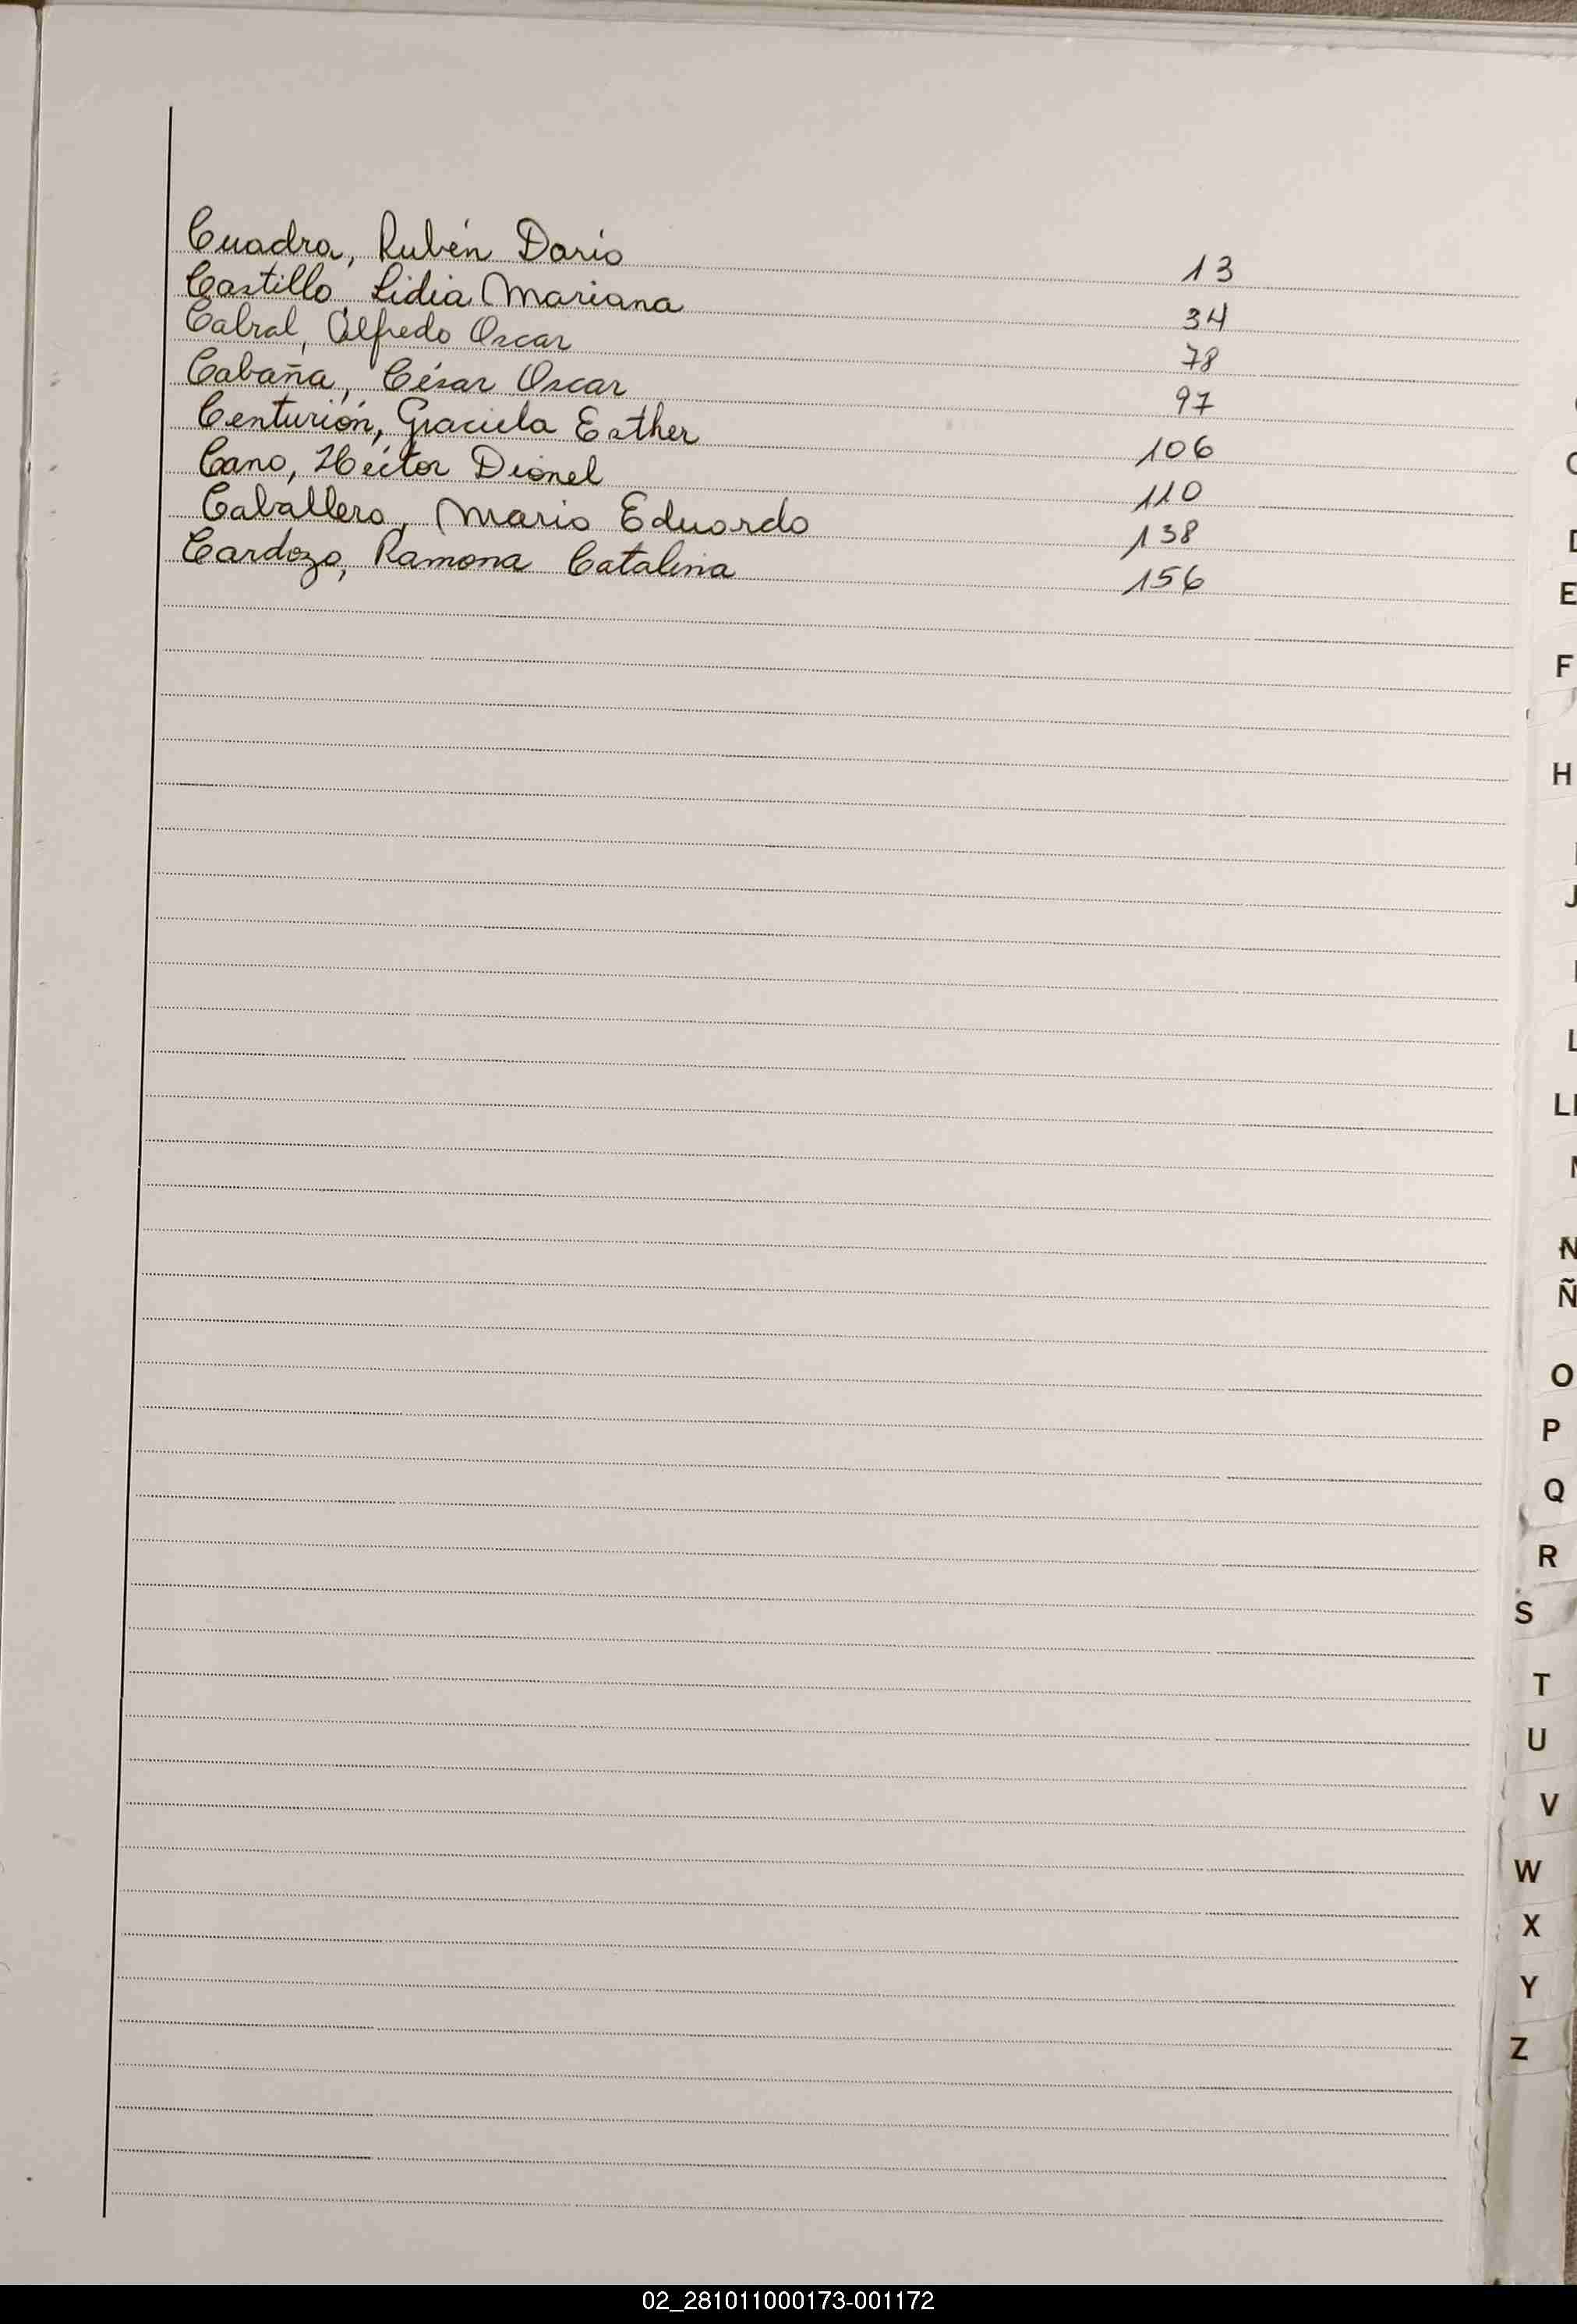 Cuadra, Rubén Darío 13
Castillo, Lidia Mariana 34
Cabral, Alfredo Oscar 78
Cabaña, César Oscar 97
Centurión, Graciela Esther 106
Cano, Héctor Dionel 110
Caballero, Mario Eduardo 138
Cardozo, Ramona Catalina 156
E
F
H
J
L
Ll
N
Ñ
O
P
Q
R
S
T
U
V
W
X
Y
Z
02_281011000173-001172